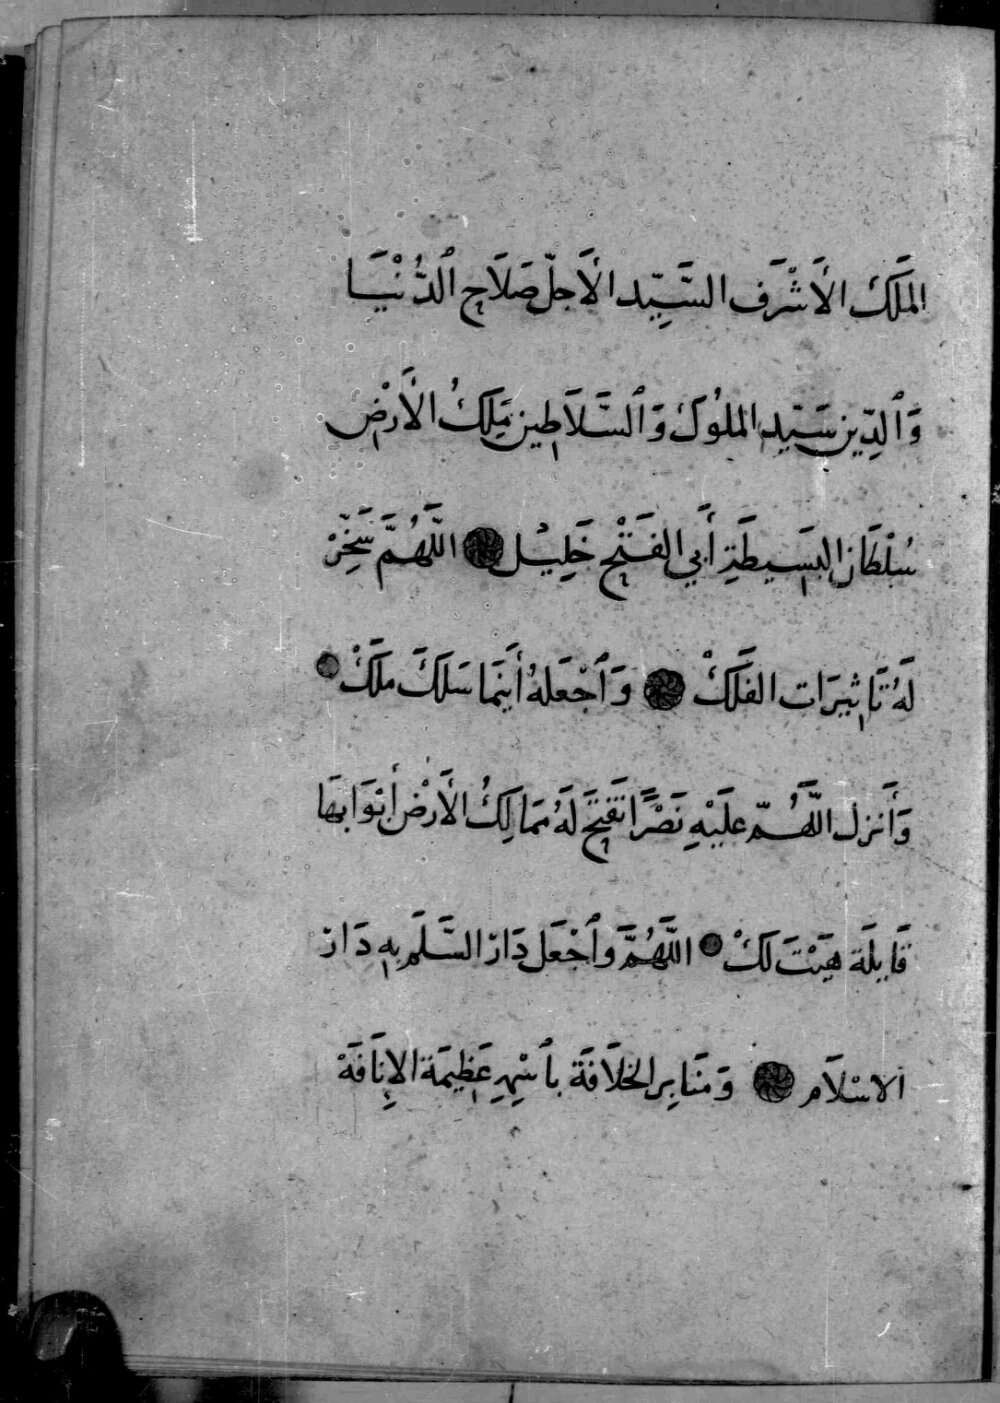 المَلَكَ الأَشْرَف السَّيِّد الأَجلّ صَلَاحِ ٱلدُّنْيَا
وَٱلدِّين سَيّدِ الملُوكَ وَٱلسَّلَاطِين مَلِكُ الأَرْض
سُلْطَان البَسَيطَةِ أَبي الفَتْحِ خَلِيْل اللَّهُمَّ سَخِّرْ
لَهُ تَاثِيرَات الفَلَكْ وَٱجْعَلهُ أَينَمَا سَلَكَ مَلَكْ
وَأَنزل اللَّهُمّ علَيْهِ نَصْرًا تَفتحَ لَهُ مَمَالِكُ الأَرْض أَبْوَابهَا
قَايلَة هَيْتَ لَكْ اللَّهُمَّ وٱجْعَل دَارَ السَّلَم بهِ دَارَ
الاسْلَام وَمَنَابِر الخلَافَة بٱسْمِهِ عَظِيمَة الإِنَافَةْ